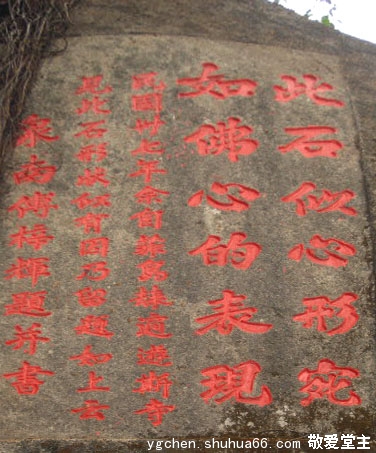 此石似心形宛
如佛心的表現
民國卅七年余菲島遊斯寺
見此石形狀似有因乃留題如上云
泉南傅輝題并書
ygchen.shuhua66.com 敬爱堂主